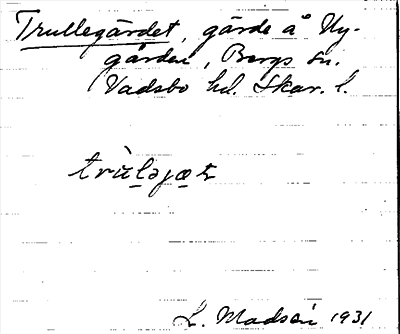 Trullegärdet, gärde å Ny-
gården, Bergs sn.
Vadsbo hd. Skar. l.
trùləjæt
L. Madsén 1931